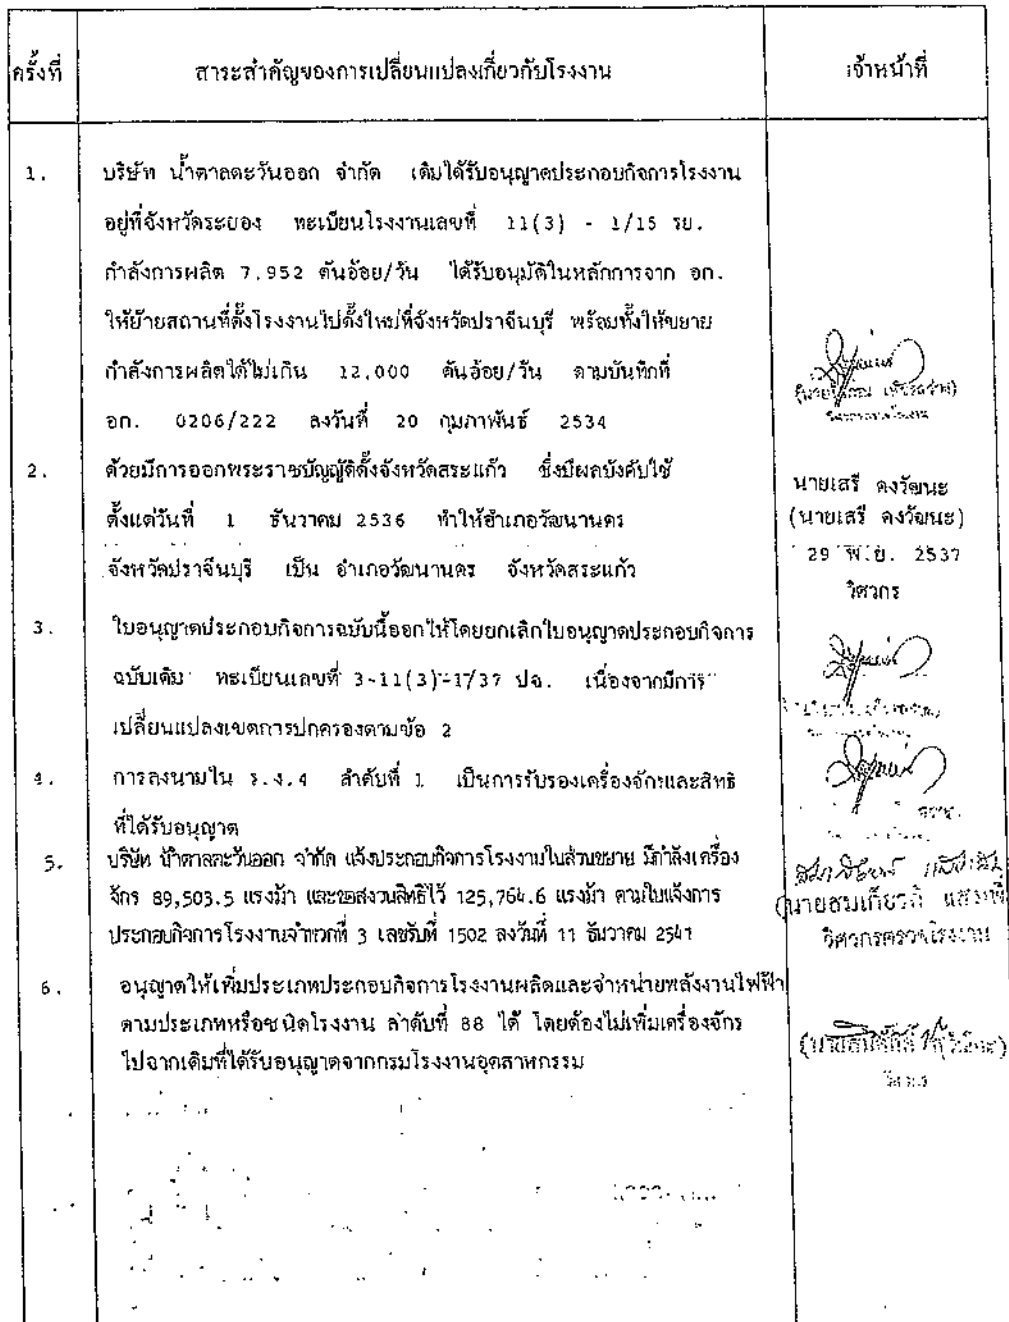 ครั้งที่ สาระสำคัญของการเปลี่ยนแปลงเกี่ยวกับโรงงาน เจ้าหน้าที่
1. บริษัท น้ำตาลตะวันออก จำกัด เดิมได้รับอนุญาตประกอบกิจการโรงงาน
อยู่ที่จังหวัดระยอง ทะเบียนโรงงานเลขที่ 11(3) - 1/15 รย.
กำลังการผลิต 7,952 ตันอ้อย/วัน ได้รับอนุมัติในหลักการจาก อก.
ให้ย้ายสถานที่ตั้งโรงงานไปตั้งใหม่ที่จังหวัดปราจีนบุรี พร้อมทั้งให้ขยาย
กำลังการผลิตได้ไม่เกิน 12,000 ตันอ้อย/วัน ตามบันทึกที่
อก. 0206/222 ลงวันที่ 20 กุมภาพันธ์ 2534
2. ด้วยมีการออกพระราชบัญญัติตั้งจังหวัดสระแก้ว ซึ่งมีผลบังคับใช้
ตั้งแต่วันที่ 1 ธันวาคม 2536 ทำให้อำเภอวัฒนานคร
จังหวัดปราจีนบุรี เป็น อำเภอวัฒนานคร จังหวัดสระแก้ว
นายเสรี คงวัฒนะ
(นายเสรี คงวัฒนะ)
29 พ.ย. 2537
วิศวกร
3. ใบอนุญาตประกอบกิจการฉบับนี้ออกให้โดยยกเลิกใบอนุญาตประกอบกิจการ
ฉบับเดิม ทะเบียนเลขที่ 3-11(3)-1/37 ปจ. เนื่องจากมีการ
เปลี่ยนแปลงเขตการปกครองตามข้อ 2
4. การลงนามใน ร.ง.4 ลำดับที่ 1 เป็นการรับรองเครื่องจักรและสิทธิ
ที่ได้รับอนุญาต
5. บริษัท น้ำตาลตะวันออก จำกัด แจ้งประกอบกิจการโรงงานในส่วนขยาย มีกำลังเครื่อง
จักร 89,503.5 แรงม้า และขอสงวนสิทธิไว้ 125,764.6 แรงม้า ตามใบแจ้งการ
ประกอบกิจการโรงงานจำพวกที่ 3 เลขรับที่ 1502 ลงวันที่ 11 ธันวาคม 2541
(นายสมเกียรติ
วิศวกรตรวจโรงงาน
6. อนุญาตให้เพิ่มประเภทประกอบกิจการโรงงานผลิตและจำหน่ายพลังงานไฟฟ้า
ตามประเภทหรือชนิดโรงงาน ลำดับที่ 88 ได้ โดยต้องไม่เพิ่มเครื่องจักร
ไปจากเดิมที่ได้รับอนุญาตจากกรมโรงงานอุตสาหกรรม
วิศวกร